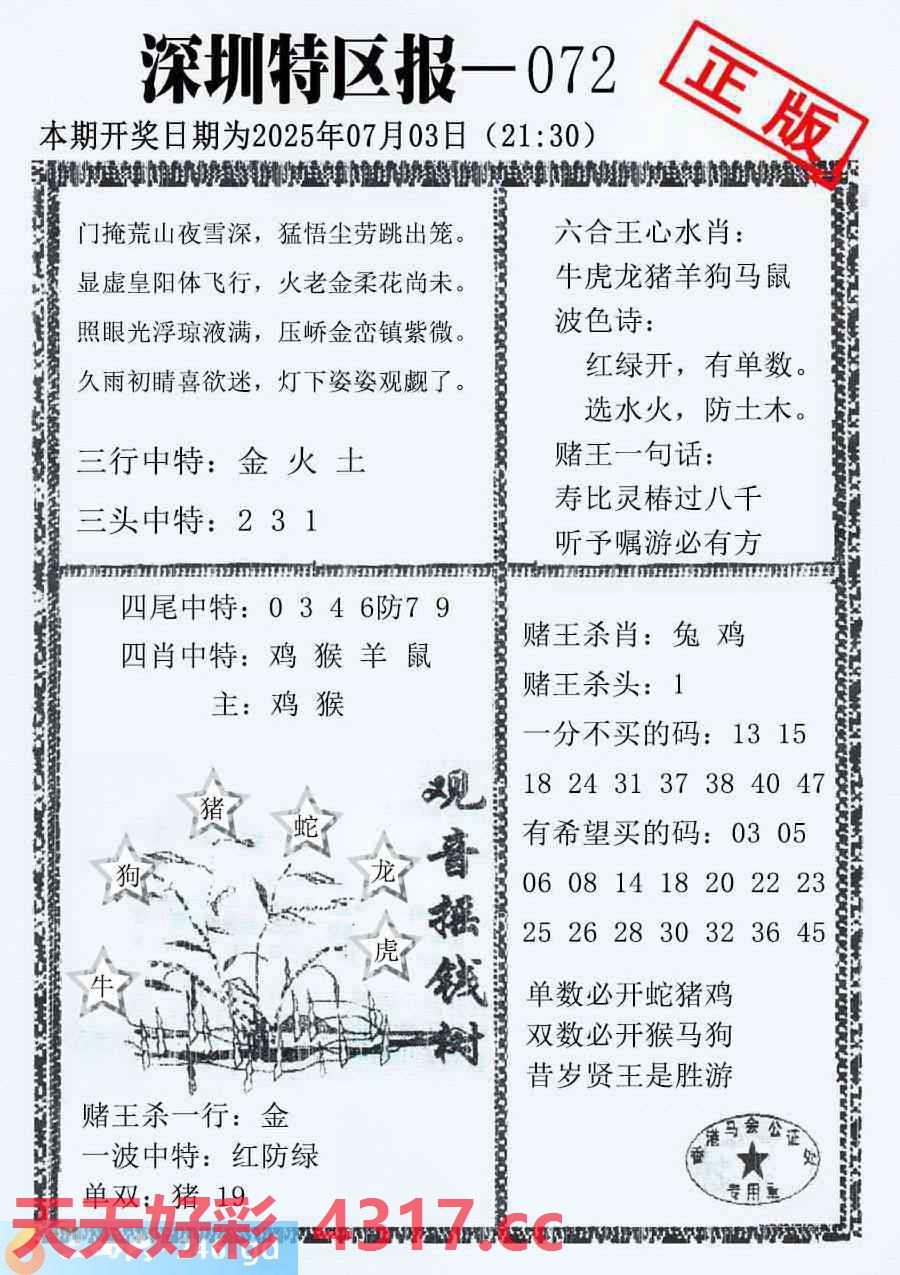 深圳特区报—072
正版
本期开奖日期为2025年07月03日（21:30）
门掩荒山夜雪深，猛悟尘劳跳出笼。
显虚皇阳体飞行，火老金柔花尚未。
照眼光浮琼液满，压峤金峦镇紫微。
久雨初睛喜欲迷，灯下姿姿观觑了。
三行中特：金 火 土
三头中特：2 3 1
六合王心水肖：
牛虎龙猪羊狗马鼠
波色诗：
红绿开，有单数。
选水火，防土木。
赌王一句话：
寿比灵椿过八千
听予嘱游必有方
四尾中特：0 3 4 6防7 9
四肖中特：鸡 猴 羊 鼠
主：鸡 猴
观音摇钱树
猪
蛇
狗
龙
虎
牛
赌王杀一行：金
一波中特：红防绿
单双：猪 19
赌王杀肖：兔 鸡
赌王杀头：1
一分不买的码：13 15
18 24 31 37 38 40 47
有希望买的码：03 05
06 08 14 18 20 22 23
25 26 28 30 32 36 45
单数必开蛇猪鸡
双数必开猴马狗
昔岁贤王是胜游
香港马会公证处
专用章
天天好彩 4317.cc